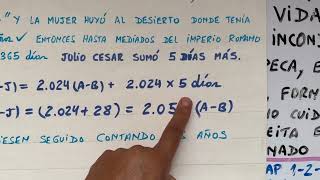 " Y LA MUJER HUYÓ AL DESIERTO DONDE TENÍA
✓ ENTONCES HASTA MEDIADOS DEL IMPERIO ROMANO
365 días JULIO CESAR SUMÓ 5 DÍAS MÁS.
-J) = 2.024 (A-B) + 2.024 x 5 días
-J) = (2.024 + 28) = 2.05 (A-B)
IESEN SEGUIDO CONTANDO AÑOS
VIDA
INCON
PECA, E
, FORM
O CUID
EITA B
NADO
AP 1-2-